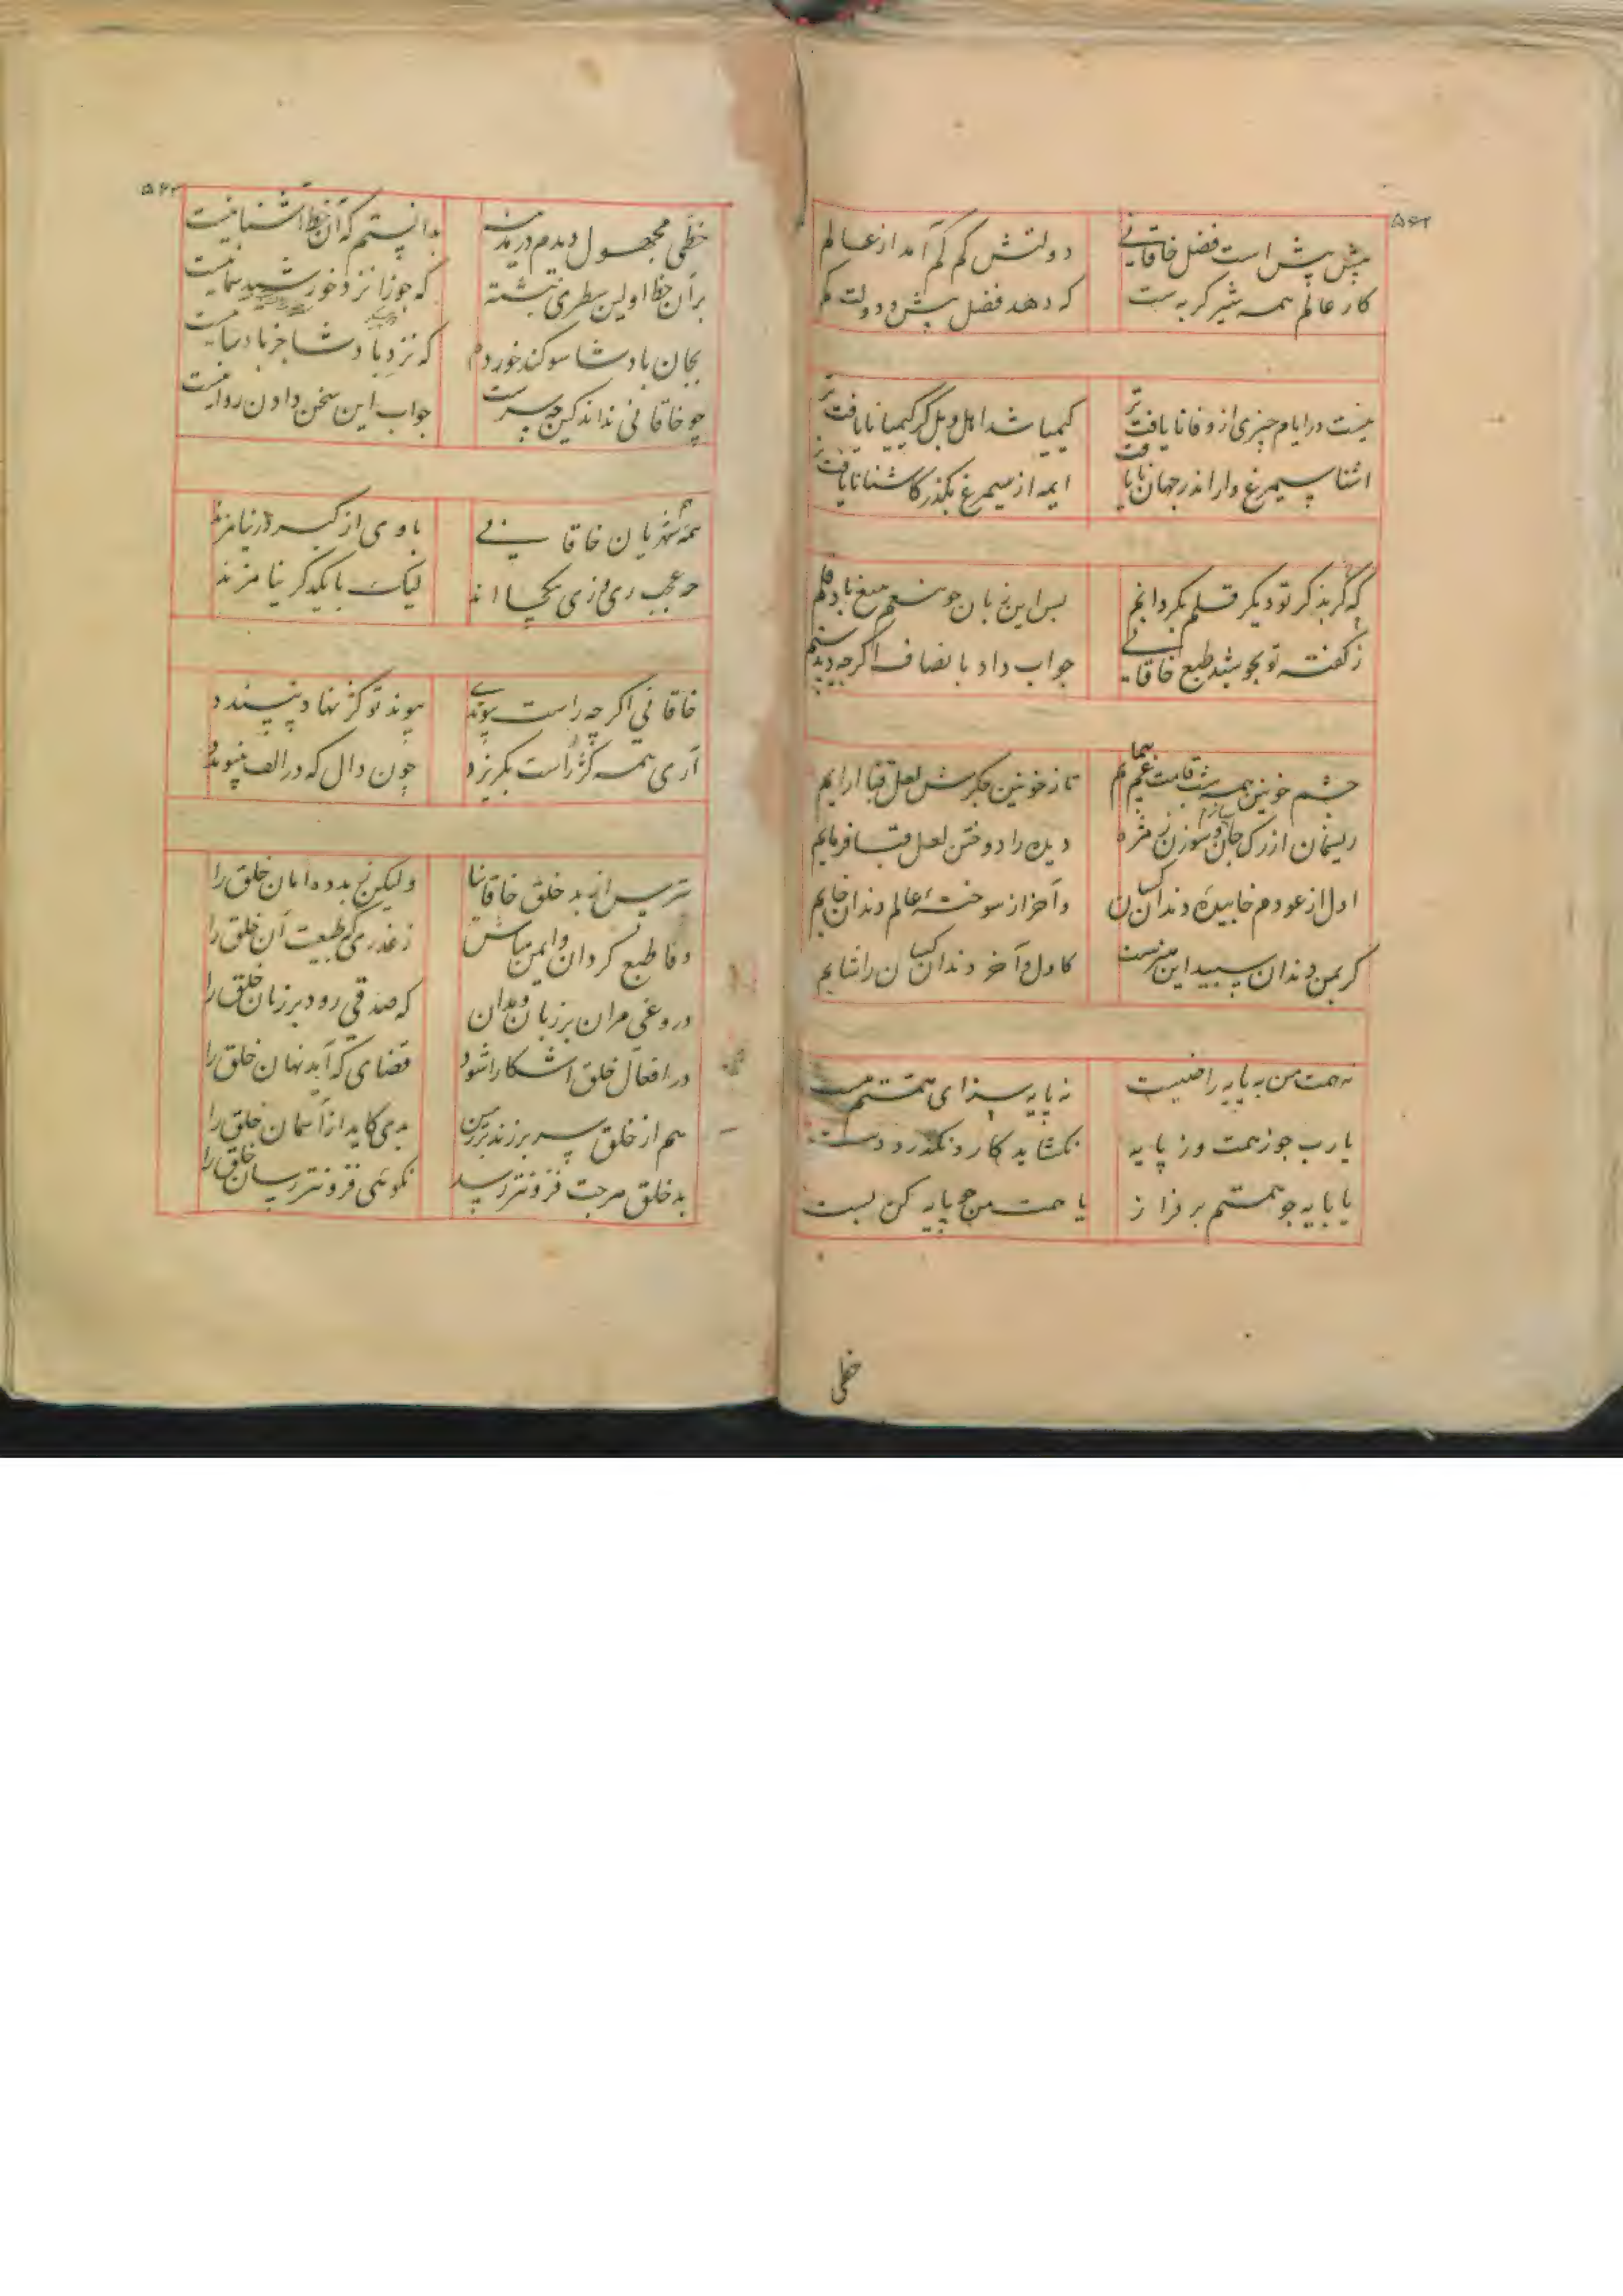 ۵۶۲
بیش بیش است فضل خاقانی
دولتش کم کم آمد از عالم
کار عالم همه شیر گربه ست
که دهد فضل بیش و دولت کم
نیست در ایام چیزی از وفا نایافت تر
کیمیا شد اهل وبل کز کیمیا نایافت تر
اشنا سیمرغ وار اندر جهان نایافت
ایمه از سیمرغ بگذر کاشنا نایافت تر
که گر بذکر تو دیگر قلم بگردانم
پس این زبان چو
ز گفته تو بجوشید طبع خاقانی
جواب داد بانصاف اگرچه دید ستم
چشم خونین همه شب قامت شب پیمایم
تا ز خونین جگرش لعل قبا ارایم
ریسمان از رگ جان سازم و سوزن ز مژه
دیده را دوختن لعل قبا فرمایم
اول از عودم خاییده دندان کسان
واخر از سوخته عالم دندان خایم
گر بمن دندان سپید این
کاول و آخر دندان کسان را شایم
نه همت من به پایه راضیست
نه پایه سزای همتم هست
یا رب چو ز همت وز پایه
نگشاید کار و نگذرد دست
یا پایه چو همتم بر فراز
یا همت من چو پایه کن پست
خطی
خطی مجهول دیدم در مدینه
بدانستم که آن خط اشنا نیست
بر آن خط اولین سطری نبشته
که جوزا نزد خورشید سما نیست
بجان پادشا سوگند خوردم
که نزد پادشا جز پادشا نیست
چو خاقانی نداند کین چه سر ست
جواب این سخن دادن روا نیست
همه شهریان خاقانی
با وی از کبر در نیامیزند
چه عجب ری و زی یکجااند
لیک با یکدگر نیامیزند
خاقانی اگرچه راست پیوندی
پیوند تو کژ نهاد نپسندد
آری همه کژ ز راست بگریزد
چون دال که در الف نپیوندد
بترس از بد خلق خاقانیا
ولیکن بده امان خلق را
وفا طبع گردان و ایمن مباش
ز غدری که طبیعت آن خلق را
دروغی مران بر زبان و مدان
که صدقی رود بر زبان خلق را
در افعال خلق اشکارا شود
قضای که آید نهان خلق را
هم از خلق سر برزند بر زمین
بدی کاید از آسمان خلق را
به خلق هرچت فزونتر رسید
نکوئی فزونتر رسان خلق را